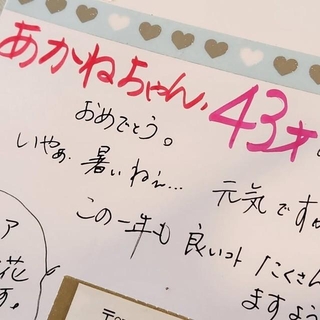 あかねちゃん、43才
おめでとう。
いやぁ、暑いねぇ… 元気ですか
この一年も 良いコト たくさん
ますよう
ア
花
す。
〒